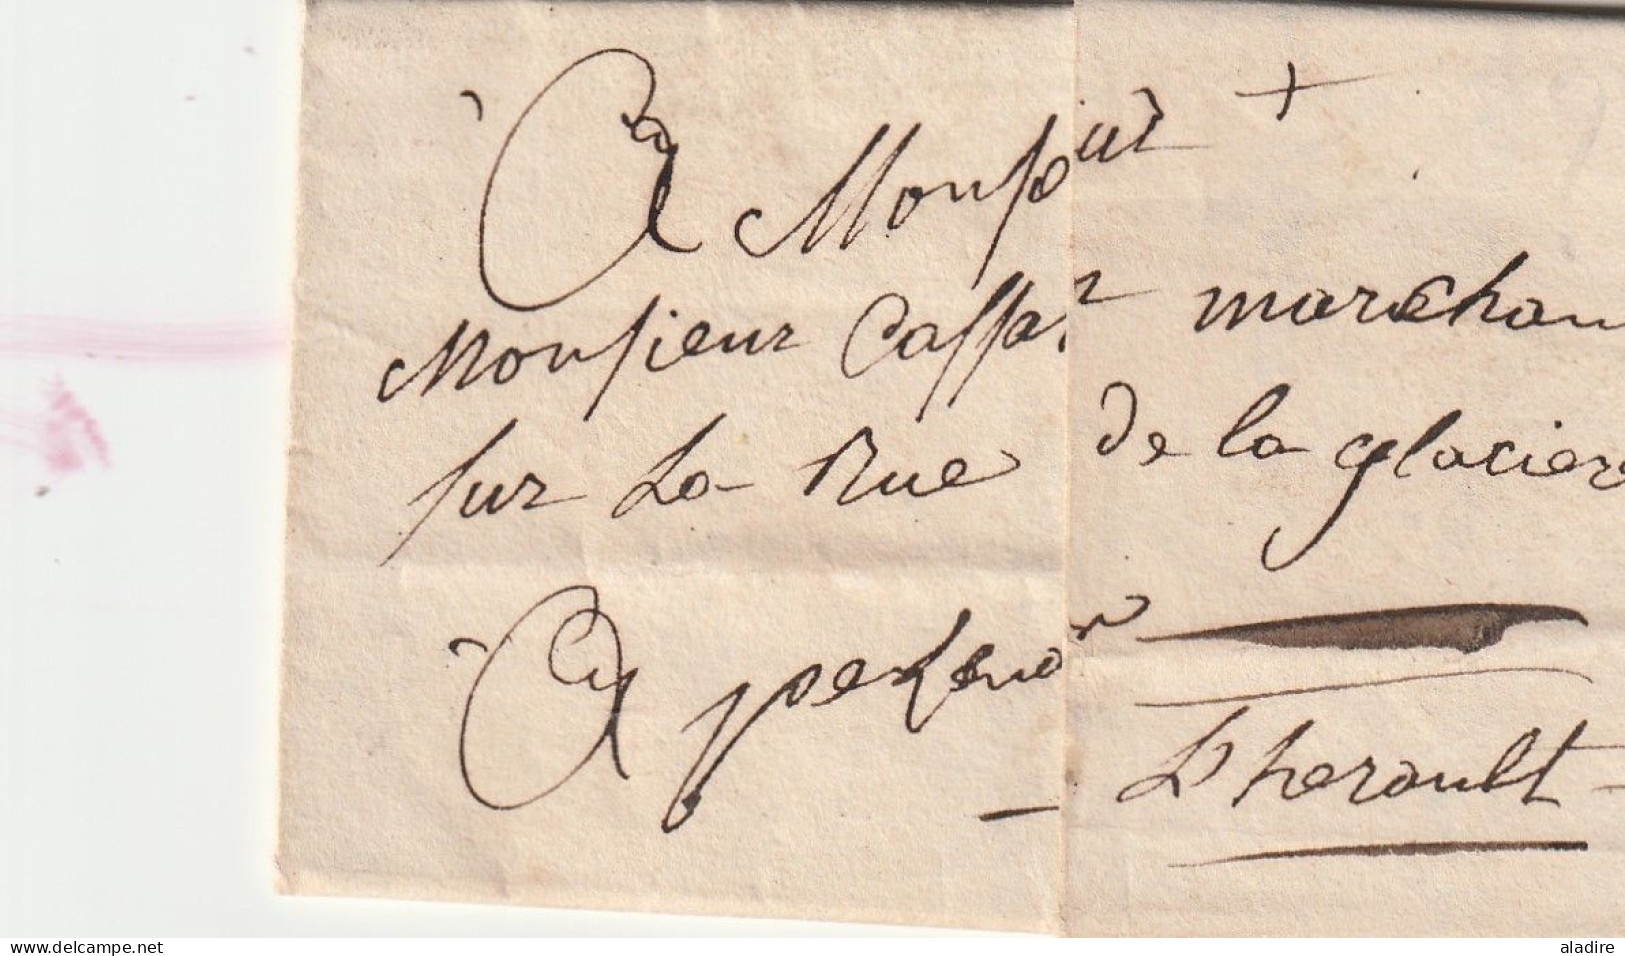 A Monsieur
Monsieur Caffar marchan
sur La Rue de la glaciere
A pezenor
L'herault
www.delcampe.net
aladire